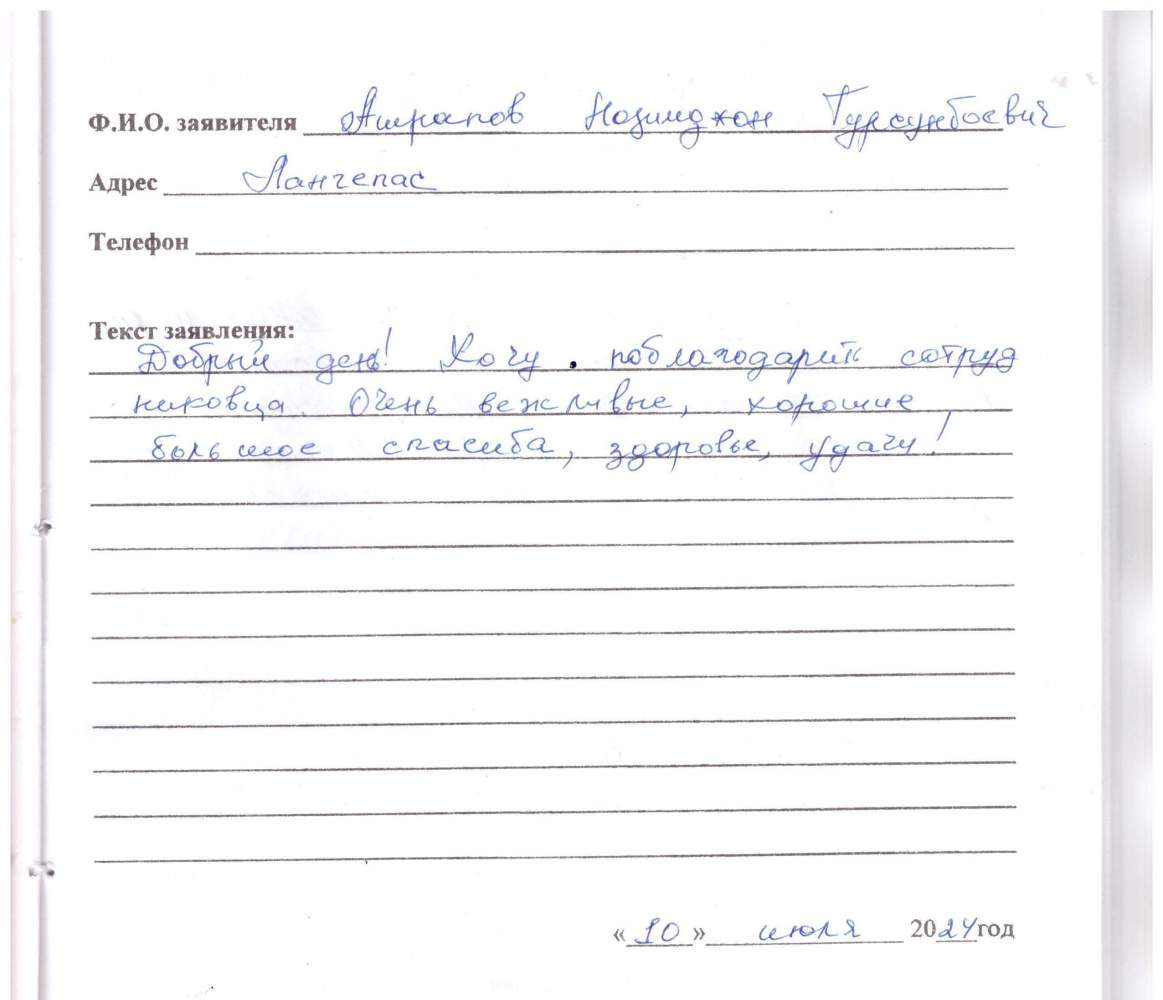 Ф.И.О. заявителя Ашрапов Нозимджон Турсунбоевич
Адрес Лангепас
Телефон
Текст заявления:
Добрый день! Хочу поблагодарить сотруд
никовца Очень вежливые, хорошие
большое спасиба, здоровье, удачи!
«10» июля 2024год